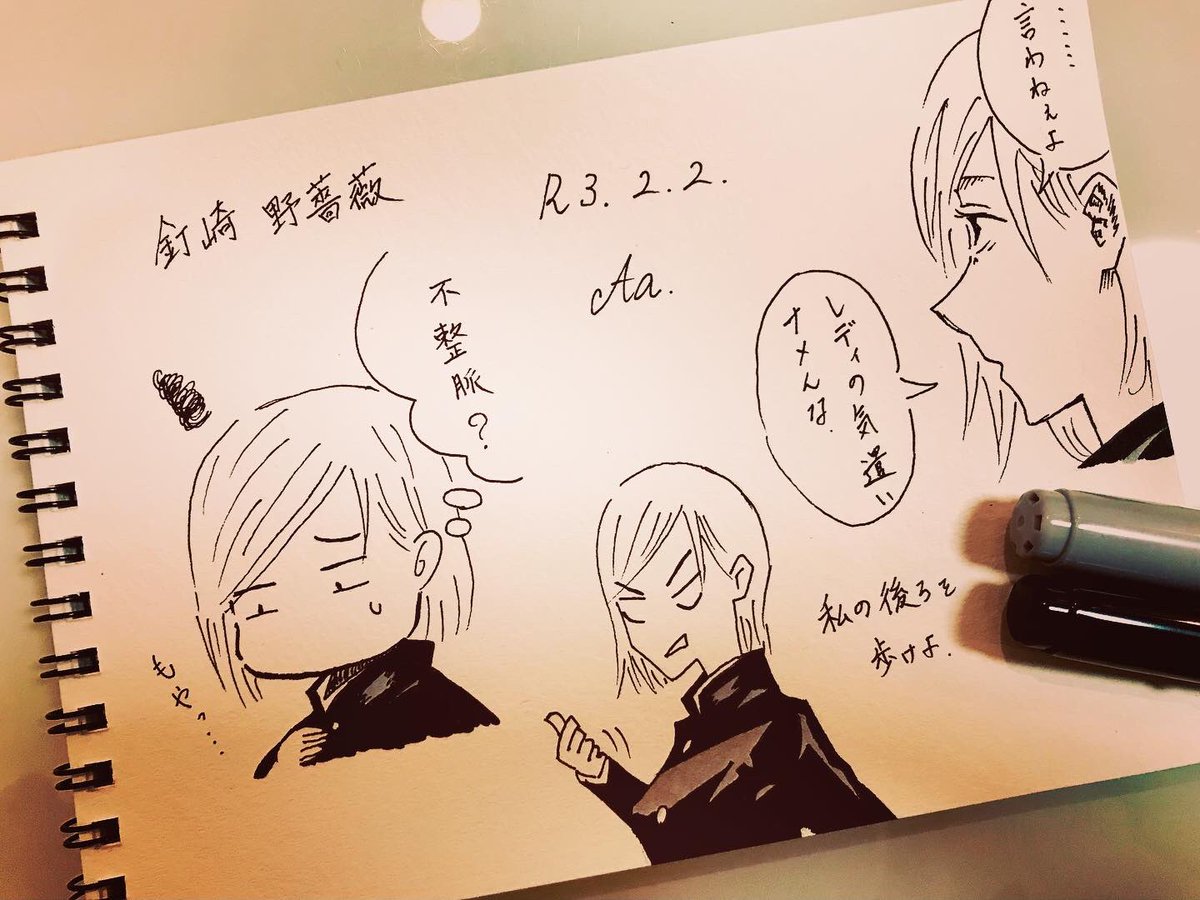 釘崎 野薔薇
R3.2.2.
Aa.
………
言わねぇよ
レディの気遣い
ナメんな.
不整脈?
もやっ…
私の後ろを
歩けよ.